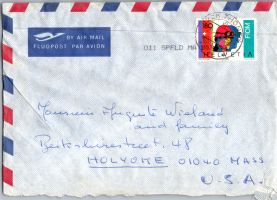 BY AIR MAIL
FLUGPOST PAR AVION
011 SPFLD MA
80
HELVETIA
Monsieur Auguste Wieland
and family
Berkshirestreet. 48
HOLYOKE 01040 MASS
U.S.A.